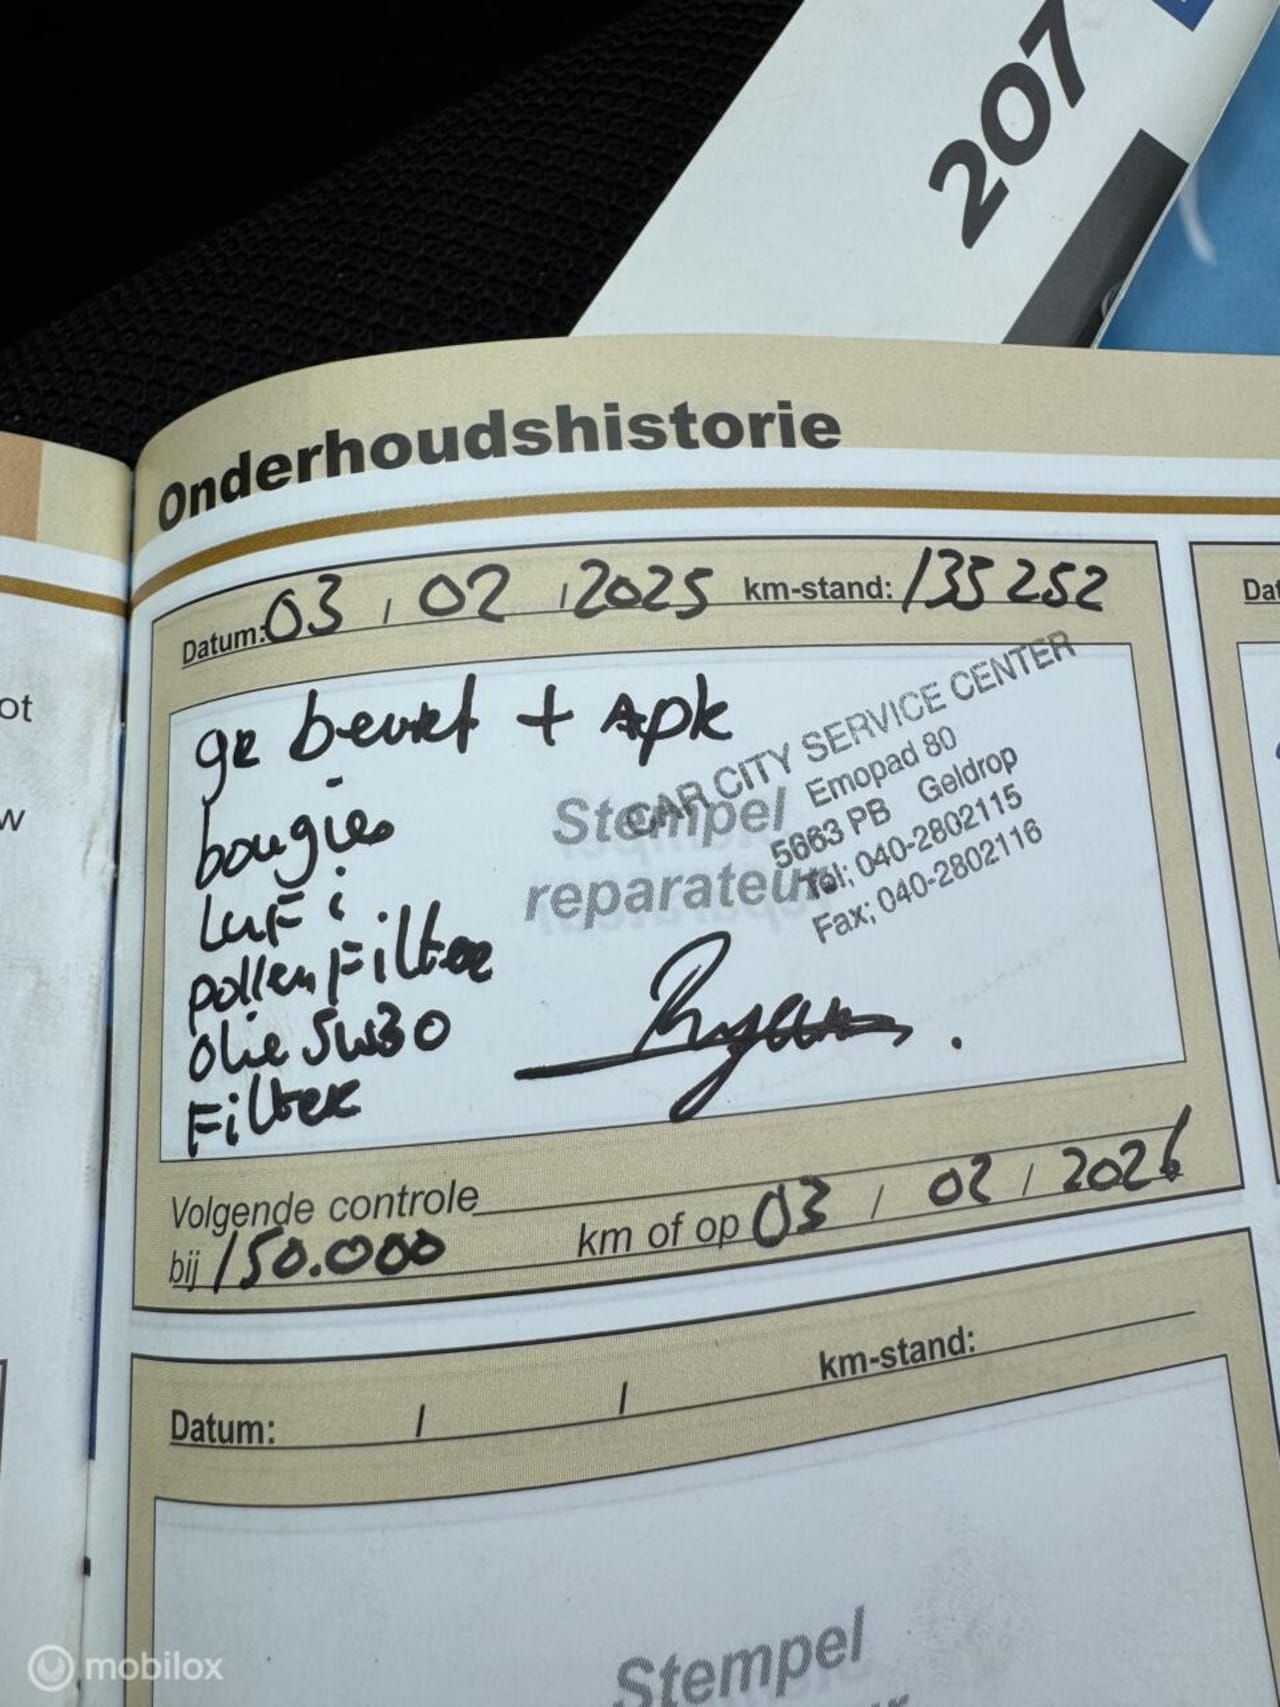 207
Onderhoudshistorie
Datum: 03 / 02 / 2025 km-stand: 135252
ge beurt + Apk
bougies
LuFi
pollenFilter
olie 5W30
Filter
Stempel
reparateur
CAR CITY SERVICE CENTER
Emopad 80
5663 PB Geldrop
Tel; 040-2802115
Fax; 040-2802116
Ryan
Volgende controle
bij 150.000 km of op 03 / 02 / 2026
Datum: / / km-stand:
Stempel
Dat
ot
w
mobilox